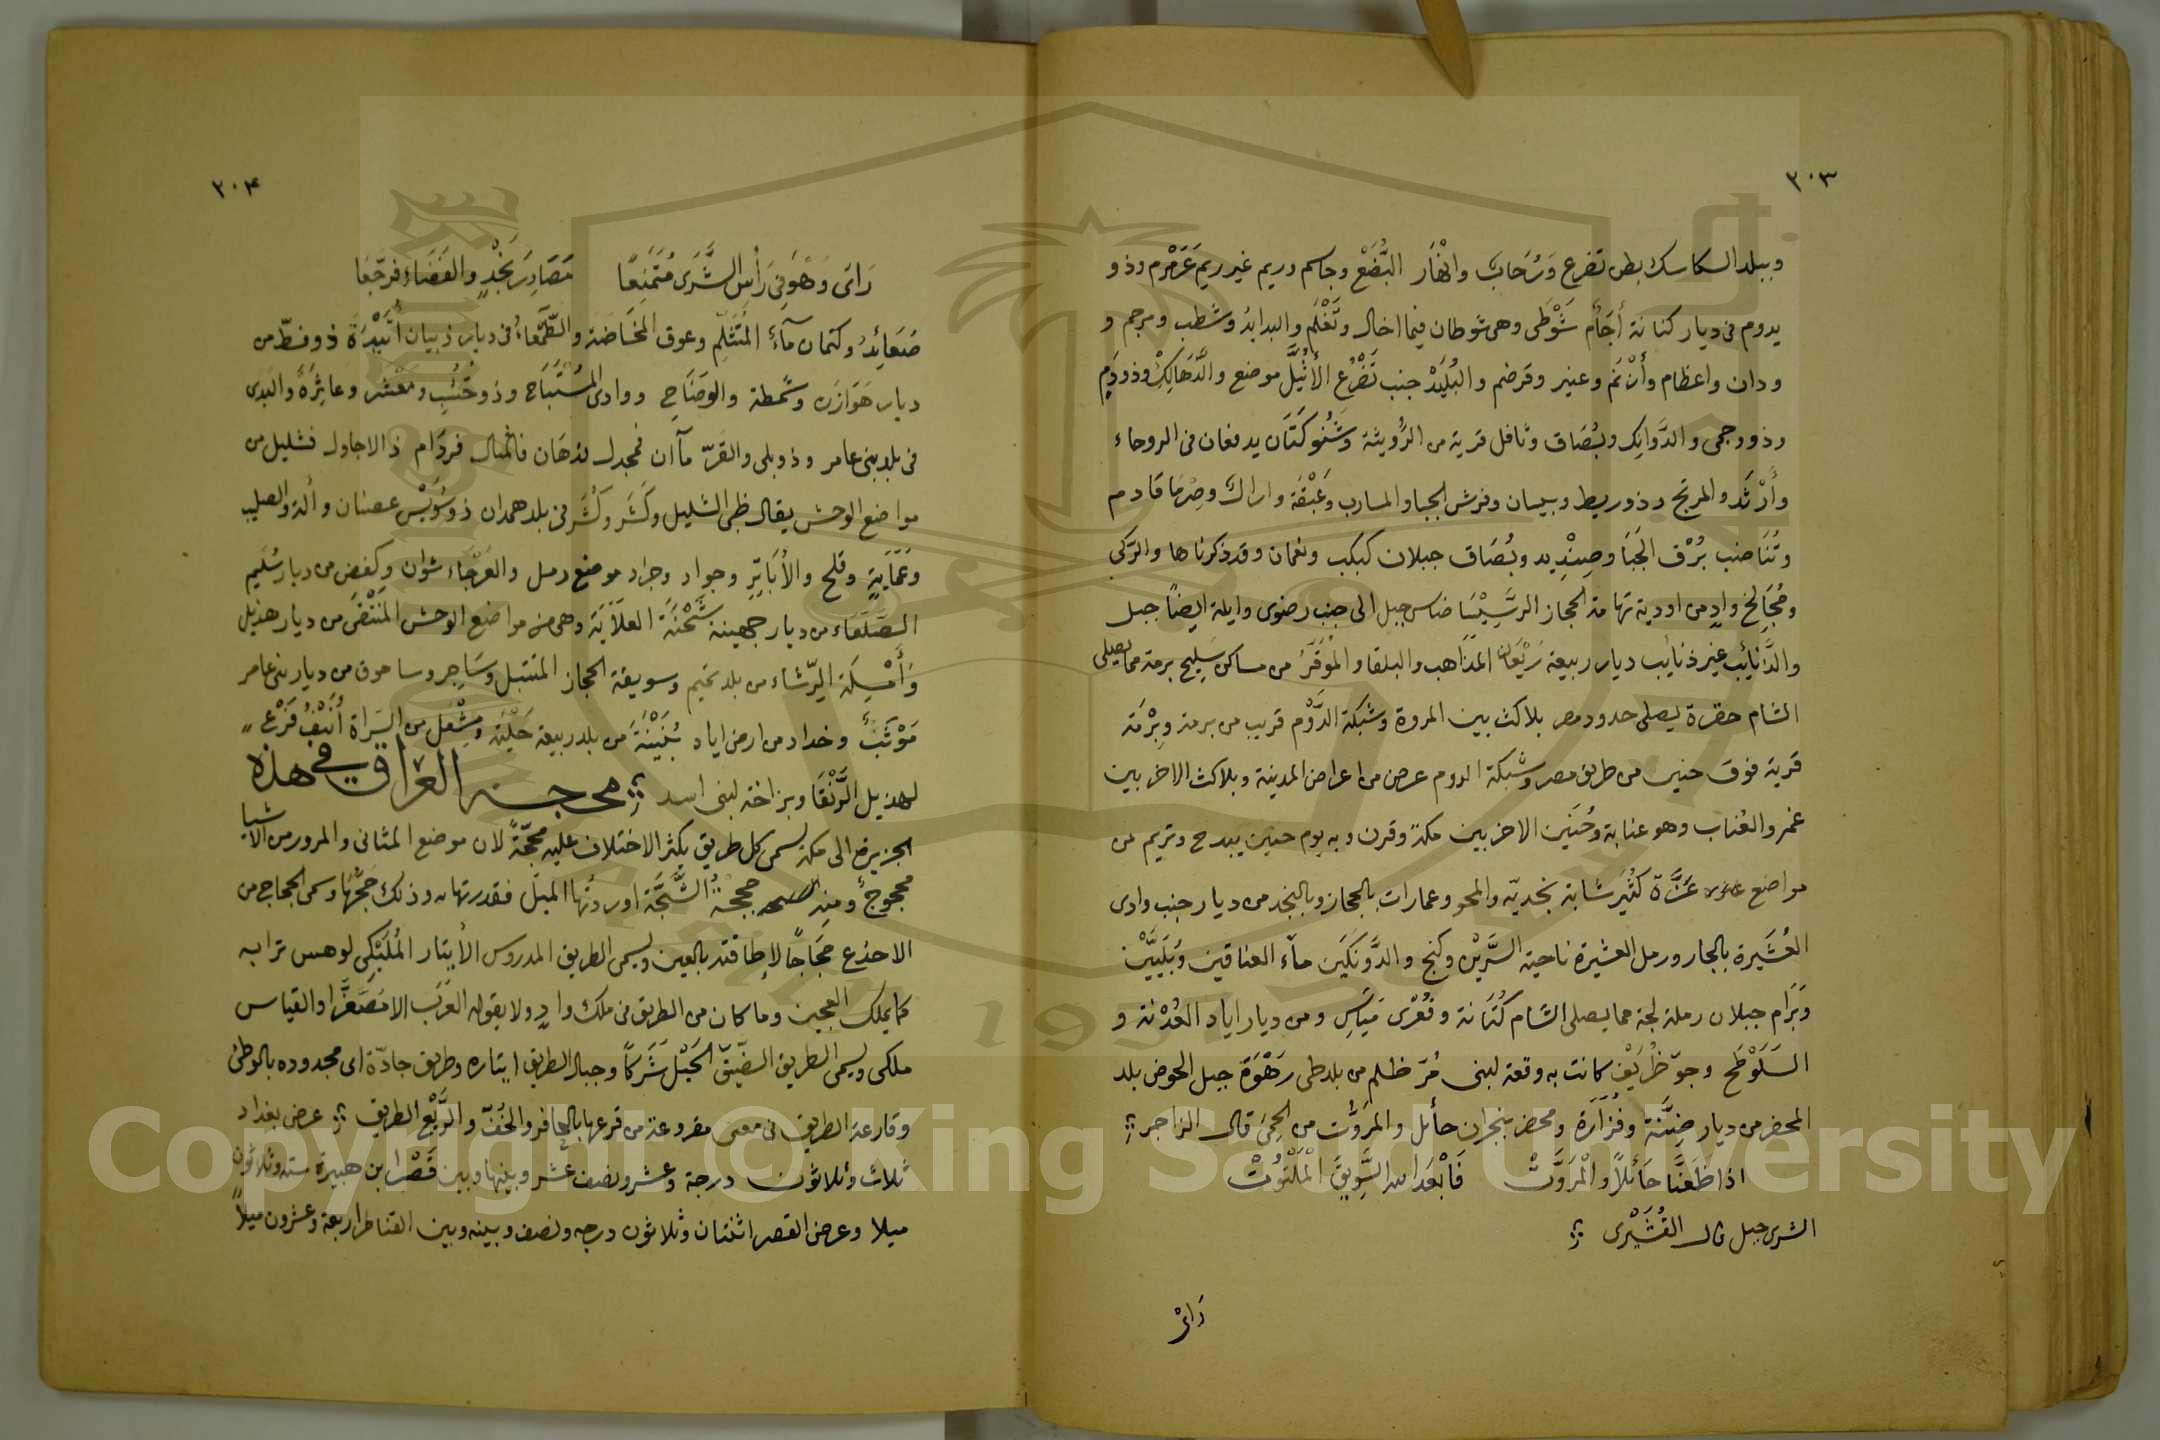 ٣٠٣
وببلد السكاسك بطن تضرع وسُحاب وانْفار البُضَعْ وجاسم وريم غير ريم عَرَمْرم وذو
يدوم فى ديار كنانة أجَأم شَوْطَى وهى شوطان فيما اخال وتَغْلَم والبدايد وشطب ومرجم و
ودان واعظام وأرْثم وعنيز وقرضم والبُلَيْد جنب تَضْرُع الأثيَّل موضع والدَّهَالِكْ وذودَمٍ
وذو رجمى والدَّوانِك وبُصَاق وثافل قرية من الرُّويثة وشَنُوكَتَان يدفعان فى الروحاء
وأرْثَد والمرتج وذو ريط وبيسان وفرش الجبا والمسارب وعَبْقَة واراك وصِرْمَا قادم
وتَنَاضب بُرْق الجَبَا وصِنْدِيد وبُصَاق جبلان كبكب ونعمان وقد ذكرناها والتركى
ومُجَالِخ وادٍ من اودية تهامة الحجاز الرسِيْسَا ضاس جبل الى جنب رضوى وايلة ايضاً جبل
والدَّنائب غير ذنايب ديار ربيعة رَيْعَان المذاهب والبلقا والمُوَقَّرُ من مساكن سَلِيح برمة مما يصلى
الشام حقرة يصلى حدود مصر بلاكث بين المروة وشبكة الدَّوْم قريب من برمة وبِرْمَة
قرية فوق حنين من طريق مصر وشبكة الدوم عرض من اعراض المدينة وبلاكث الاخر بين
غمر والعُناب وهو عنابة وحُنَين الاخر بين مكة وقرن وبه يوم حنين يبدح وتريم من
مواضع عزَّة كُثَير شابة نجديّه والمحو وعمارات بالحجاز وبالنجد من ديار جنب وادى
العُشَيرة بالجار ورمل العشيرة ناحية السَّرَّيْن وكنج والدَّونَكَين مآء العناقين وبُلَيَّيْن
وبَرَام جبلان رملة لجة مما يصلى الشام كُتَمانة وفُعْرَى مَيَاسِر ومن ديار اياد العُدْنة و
السَلَوْطَح وجوّ ظُرَيْف كانت به وقعة لبنى مُرّ ظلم من بلد طى رَهْوَة جبل الحوض بلد
المحضر من ديار ضِنَّنَة وفُزَارَة ومحضر بنجران حأئل والمَرَوُّت من الحِمَى قال الزاجر
اذا قطَعْنَا حَائلاً والْمَرَوَّتْ فَابْعَدَ الله السَّوِيقَ الْمَلْتُوتْ
الشرى جبل قال القُشَيْرى
رَاى
٣٠٤
رَاى وَهْوَ فى رَأسِ الشَّرَى مُتَمَنِعًا مَصَادِرَ نَجْدٍ والفَضَاء فرجّعَا
ضعَائِدُ وكتمان مآءُ المُتَثَلَّم وعوق المخَاضَة والطَّمْعَاءُ فى ديار ذبيان أُثَيْدَةَ ذوفطّ من
ديار هَوَازن وشَمطة والوضَاحِ ووادى المُسْتَبَاح وذو حُسُبٍ ومَعْشر وعاثِرَةَ والبَدى
فى بلد بنى عامر وذو بلى والقَرّ مآان فمجدل فذهَان فاثْمال فردَام ذا الاجاول فشليل من
مواضع الوحش يقال ظبى الشليل وكَشَر وكُشَر فى بلد همدان ذو سُوَيْس عصنان وألة والصليب
وعَمَايَة وقلح والأُبَاتِر وجواد وجراد موضع رمل والعَرْجَاء شوان وكفض من ديار سُلَيم
الصَّلْعَاء من ديار جهينة شَحْنَة العلاَيَة وهى من مواضع الوحش المُنْتَضى من ديار هذيل
وأمْسِلَة الرّشاء من بلد تميم وسويقة الحجاز المنتبل وسَاجِر وساموق من ديار بنى عامر
مَوْثَبَ وخداد من ارض اياد بُنَيْنَة من بلد ربيعة حَلْيَة ومشْعَل من السَراة أُنَفُ فَرْع
لهذيل الرَّنْقا وبزاخة لبنى اسد محجة العراق فى هذه
الجزيرة الى مكة يسمى كل طريق يكثر الاختلاف عليه محجّةً لان موضع المثانى والمرور من الاشيا
محجوجٌ ومنه حججْتُ الشَّجَّة اوردتُها الميل فقدرتها به وذلك حَجُّهَا وسمى الحجاج من
الاخدع حجَاجًا لاطافته بالعين ويسمى الطريق المدروس الأيتار المُلَيْكِى لوهس ترابه
كما يملك العجين وما كان من الطريق فى ملك وادٍ ولا يقوله العَرَب الا مُصَغّرا والقياس
ملكى ويسمى الطريق الضَّيّقُ الحَيْل شَرَكاً وجبال الطريق ايتاره وطريق جادّة اى مجدوده بالوطئ
وقارعة الطريق فى معنى مقروعة من قرعها بالحافر والخُفّ والرَّيْع الطريق عرض بغداد
ثلاث وثلاثون درجة وعشر ونصف عُشر وبينها وبين قَصْر ابن هبيرة ستة وثلاثون
ميلا وعرض القصر اثنتان وثلاثون درجه ونصف وبينه وبين القناطر اربعة وعشرون ميلاً
Copyright © King Saud University